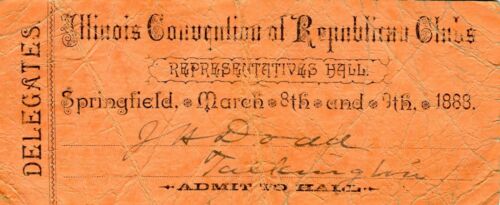 DELEGATES.
Illinois Convention of Republican Clubs
REPRESENTATIVES HALL.
Springfield, March 8th and 9th, 1888.
J H Dodd
Talkington
ADMIT TO HALL